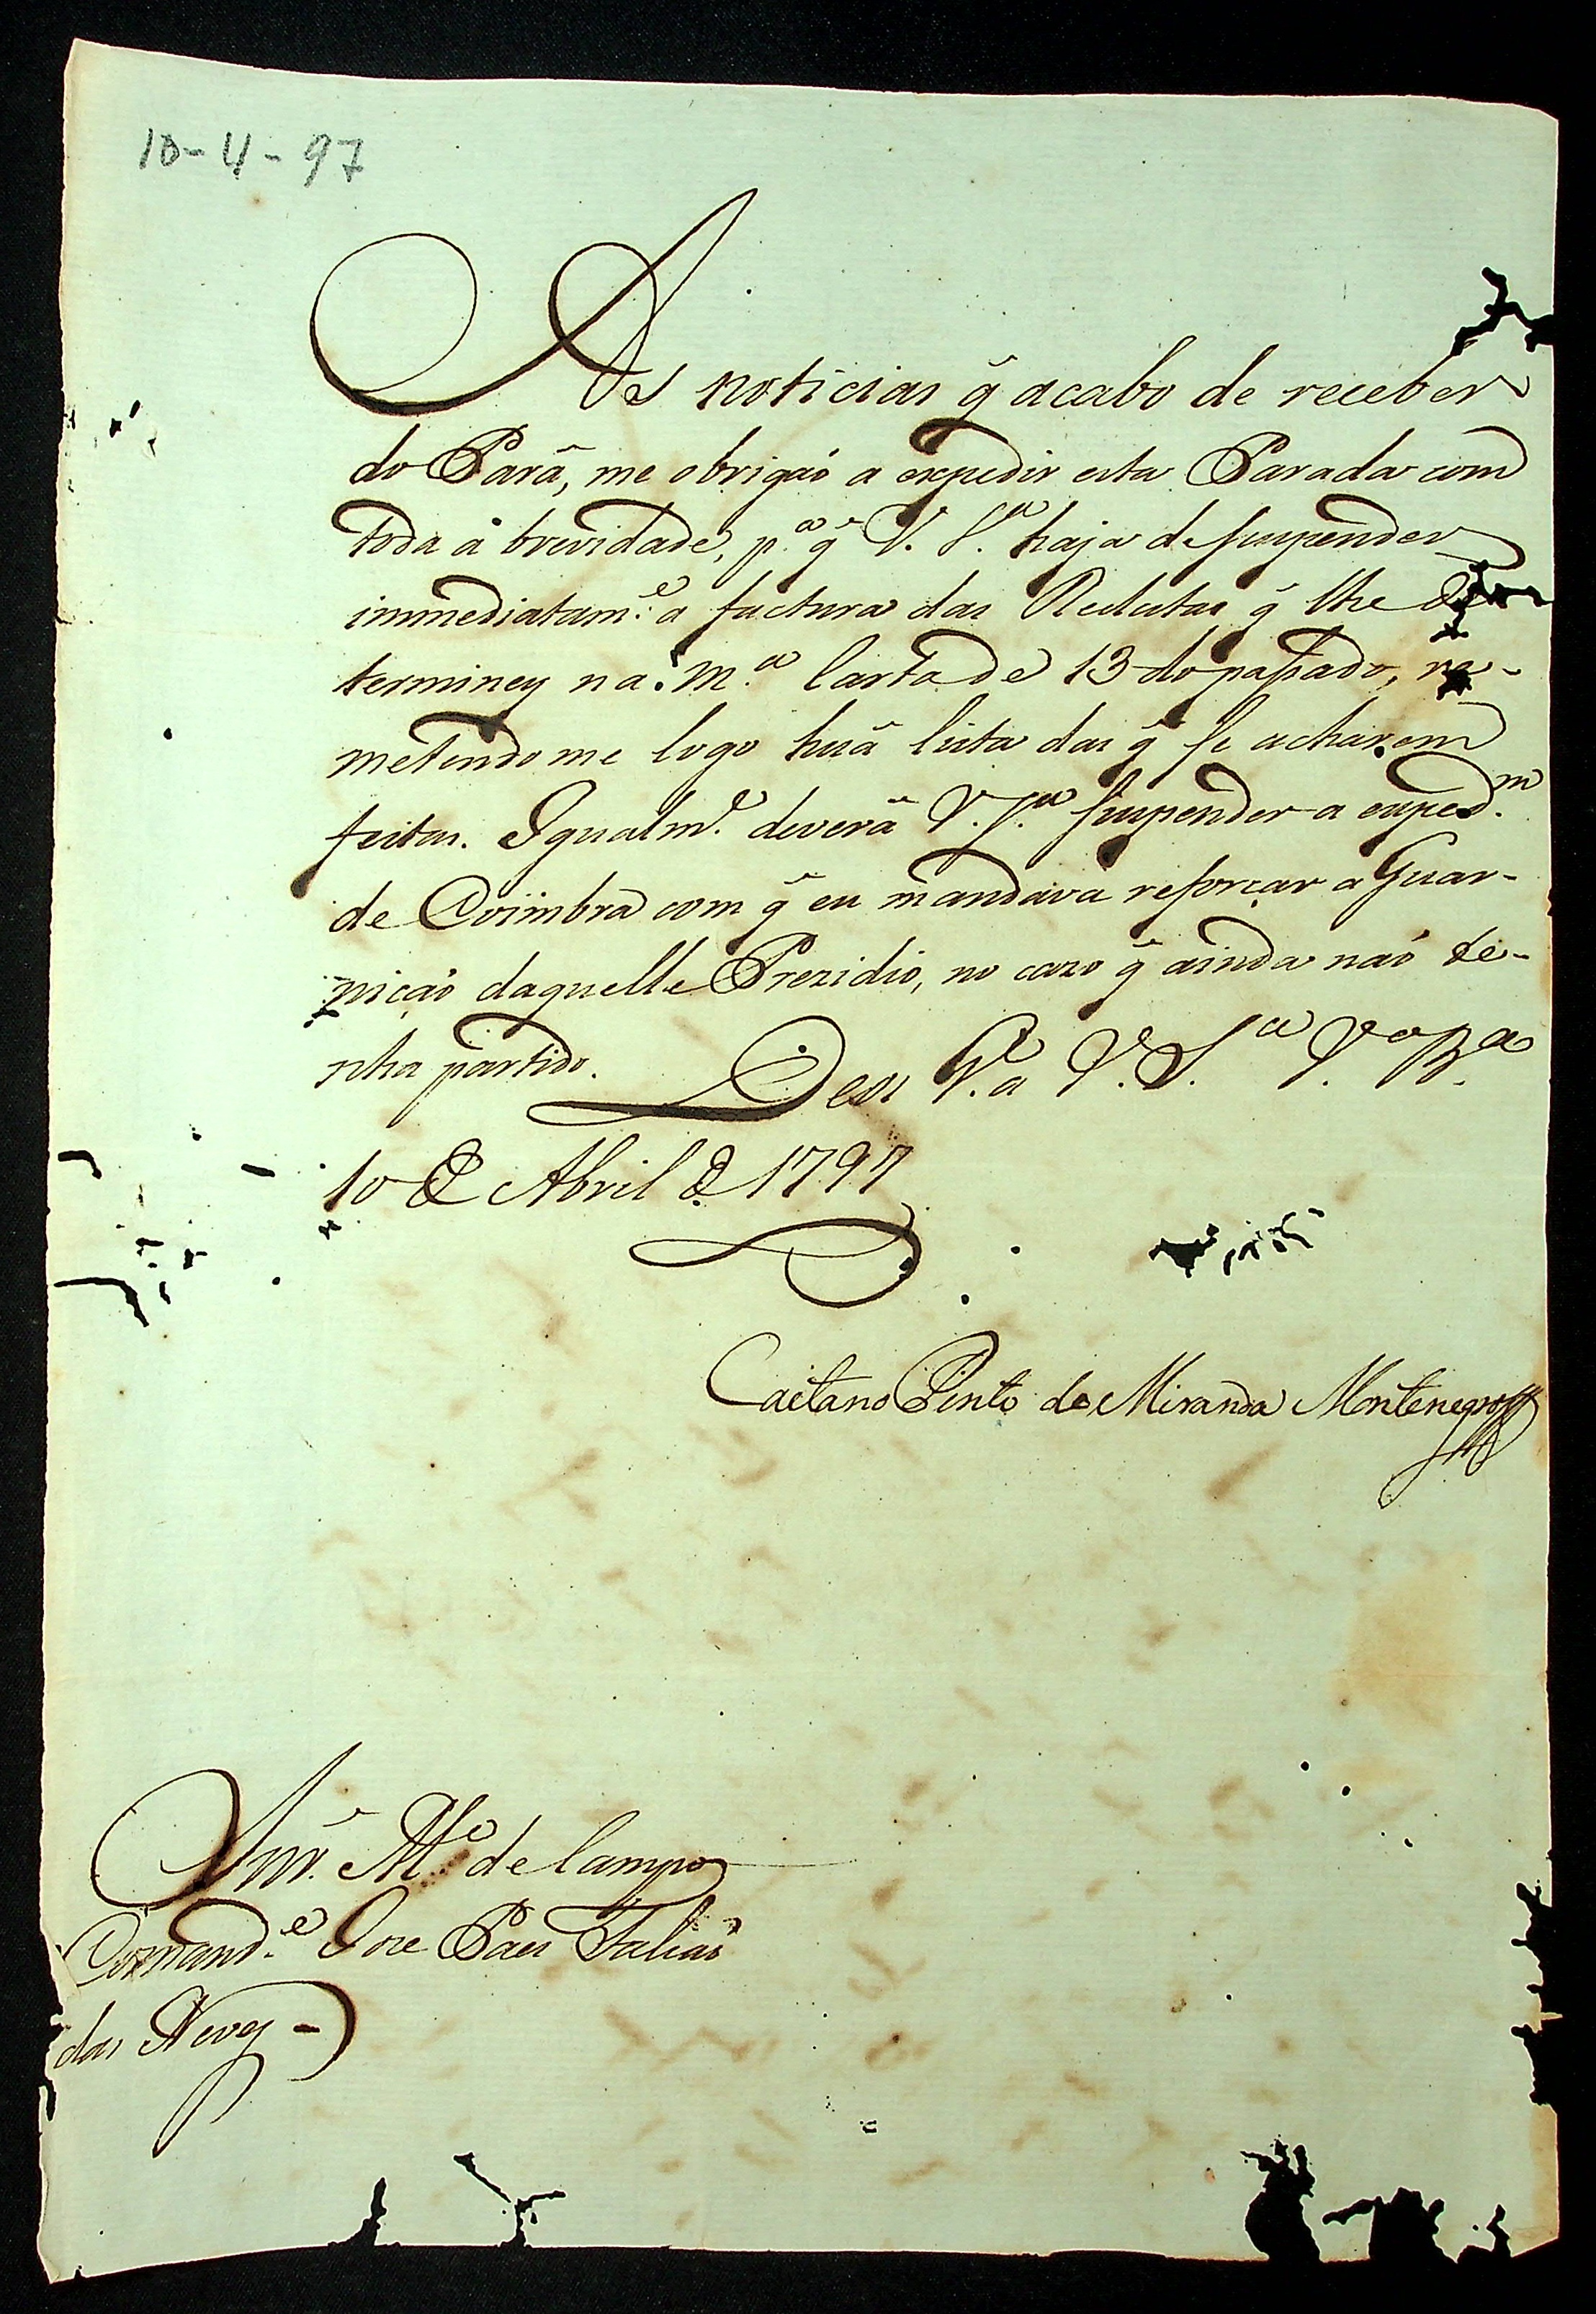 10-4-97
As noticias q̃ acabo de receber
do Parã, me obrigaõ a expedir esta Parada com
toda a brevidade, p.ª q̃ V. S.ª haja de suspender
immediatam.e a factura das Redutas q̃ lhe de
terminey na m.ª Carta de 13 do passado, re-
metendo me logo huã lista das q̃ se acharem
feitas. Igualm.e deverã V. S.ª suspender a exped.m
de Coimbra com q̃ eu mandava reforçar a Guar-
niçaõ daquelle Prezidio, no cazo q̃ ainda naõ te-
nha partido. Deos G.e a V. S.ª V.ª B.ª
10 de Abril de 1797
Caetano Pinto de Miranda Montenegro
Snr. M.e de Campo
Comand.e Joze Paes Falcaõ
das Neves -